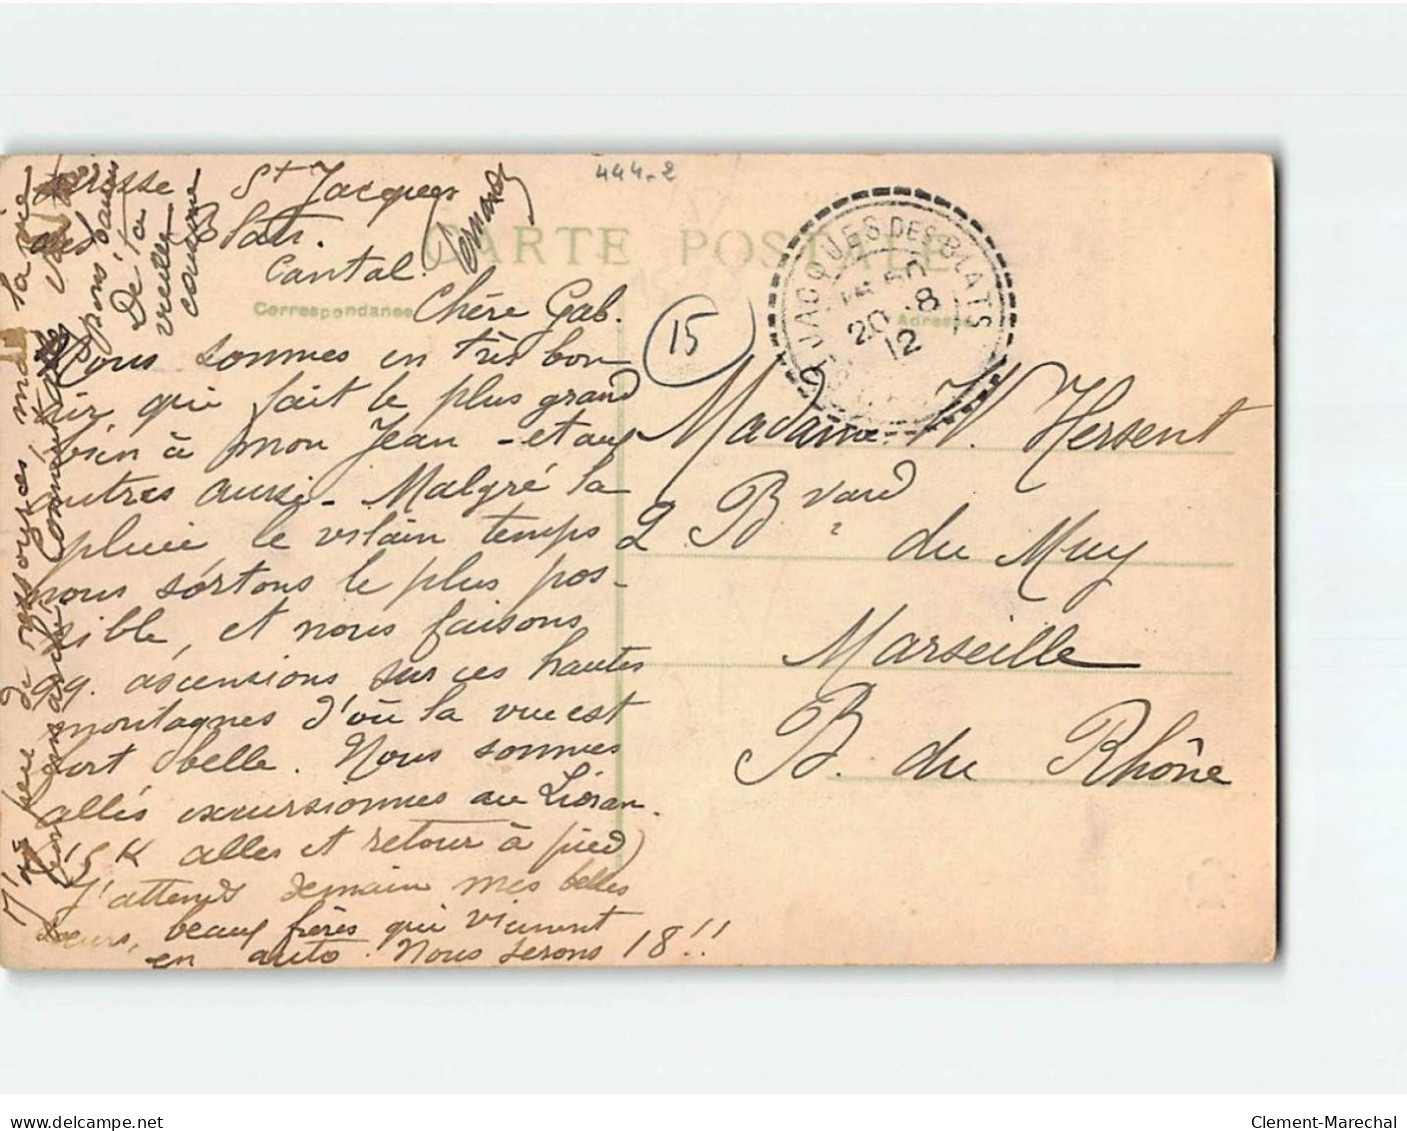 444-2
Adresse St Jacques
des Blats.
Cantal.
CARTE POSTALE
Correspondance
Adresse
JACQUES DES BLATS
20 -8
12
15
Chère Gab.
Nous sommes en très bon
air qui fait le plus grand
bien à mon Jean - et aux
autres aussi - Malgré la
pluie le vilain temps
nous sortons le plus pos-
sible, et nous faisons
qq. ascensions sur ces hautes
montagnes d'où la vue est
fort belle. Nous sommes
allés excursionnes au Lioran.
(15 K alles et retour à pied)
J'attends demain mes belles
soeurs, beaux frères qui viennent
en auto. Nous serons 18!!
Madame W. Hersent
2 Bvard
du Muy
Marseille
B. du Rhône
peu de ressources, mais la vie
pas
De ta
vieille
cousine
Clement-Marechal
delcampe.net